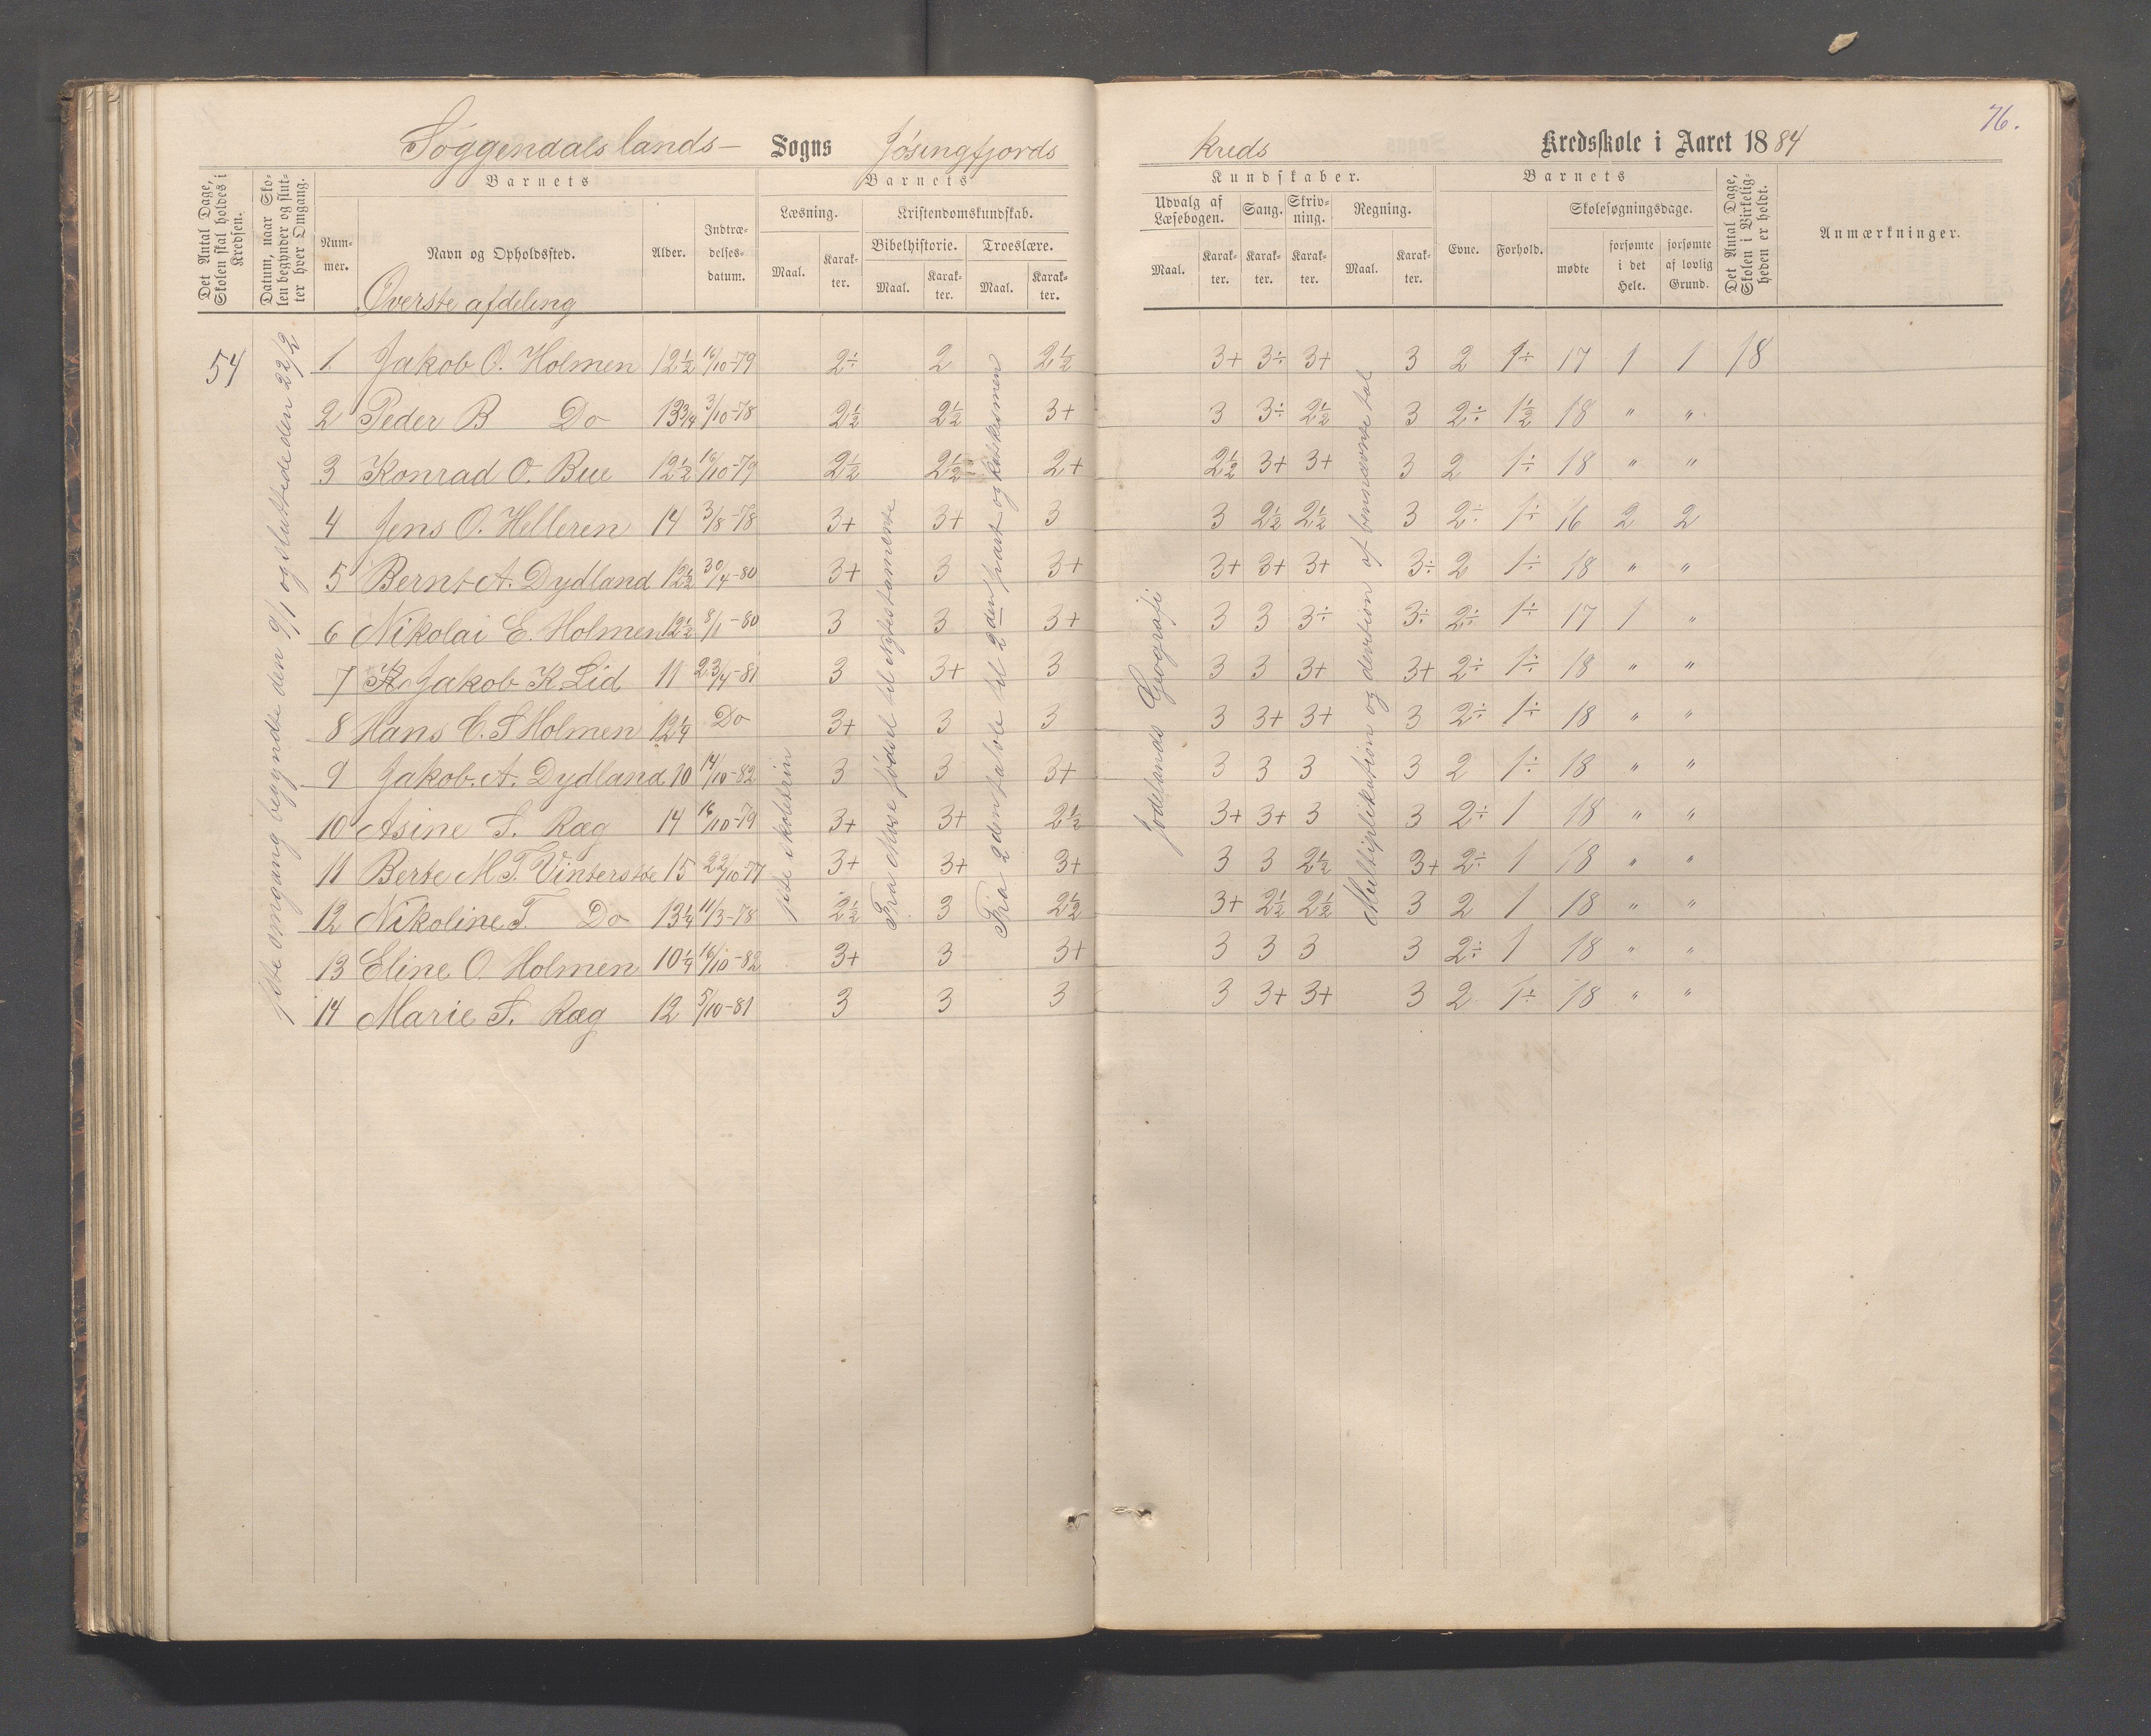 76.
Søggendals lands- Sogns Jøsingfjords kreds Kredsskole i Aaret 1884
Det Antal Dage, Skolen skal holdes i Kredsen.
Datum, naar Skolen begynder og slutter hver Omgang.
Barnets
Nummer. Navn og Opholdssted. Alder. Indtrædelsesdatum.
Barnets
Læsning. Maal. Karakter.
Kristendomskundskab.
Bibelhistorie. Maal. Karakter.
Troeslære. Maal. Karakter.
Kundskaber.
Udvalg af Læsebogen. Maal. Karakter.
Sang. Karakter.
Skrivning. Karakter.
Regning. Maal. Karakter.
Barnets
Evne. Forhold.
Skolesøgningsdage.
mødte forsømte i det Hele. forsømte af lovlig Grund.
Det Antal Dage, Skolen i Virkeligheden er holdt.
Anmærkninger.
Øverste afdeling
54
1ste omgang begyndte den 9/1 og sluttede den 22/2
1 Jakob O. Holmen 12½ 16/10-79 2÷ 2 2½ 3+ 3÷ 3+ 3 2 1÷ 17 1 1 18
2 Peder B Do 13¾ 3/10-78 2½ 2½ 3+ 3 3÷ 2½ 3 2÷ 1½ 18 " "
3 Konrad O. Bue 12½ 16/10-79 2½ 2½ 2+ 2½ 3+ 3+ 3 2 1÷ 18 " "
4 Jens O. Helleren 14 3/8-78 3+ 3+ 3 3 2½ 2½ 3 2÷ 1÷ 16 2 2
5 Bernt A. Dydland 12½ 30/4-80 3+ 3 3+ 3+ 3+ 3+ 3÷ 2 1÷ 18 " "
6 Nikolai E. Holmen 12½ 8/1-80 3 3 3+ 3 3 3÷ 3÷ 2÷ 1÷ 17 1 "
7 Jakob K. Lid 11 23/4-81 3 3+ 3 3 3 3+ 3+ 2÷ 1÷ 18 " "
8 Hans C. S Holmen 12¼ Do 3+ 3 3 3 3+ 3+ 3 2÷ 1÷ 18 " "
9 Jakob. A. Dydland 10 14/10-82 3 3 3+ 3 3 3 3 2 1÷ 18 " "
10 Asine S. Ræg 14 16/10-79 3+ 3+ 2½ 3+ 3+ 3 3 2÷ 1 18 " "
11 Berte M T. Vinterstøe 15 22/10-77 3+ 3+ 3+ 3 3 2½ 3+ 2÷ 1 18 " "
12 Nikoline T. Do 13¼ 11/3-78 2½ 3 2½ 3+ 2½ 2½ 3 2 1 18 " "
13 Eline O. Holmen 10¼ 16/10-82 3+ 3 3+ 3 3 3 3 2÷ 1 18 " "
14 Marie S. Ræg 12 5/10-81 3 3 3 3 3+ 3+ 3 2 1÷ 18 " "
1ste skoletrin
Fra Mose fødsel til Nytestamente
Fra 2den tavle til 2den part og katekismen
Jødelands Geografi
Multiplikation og divition af benævnte tal